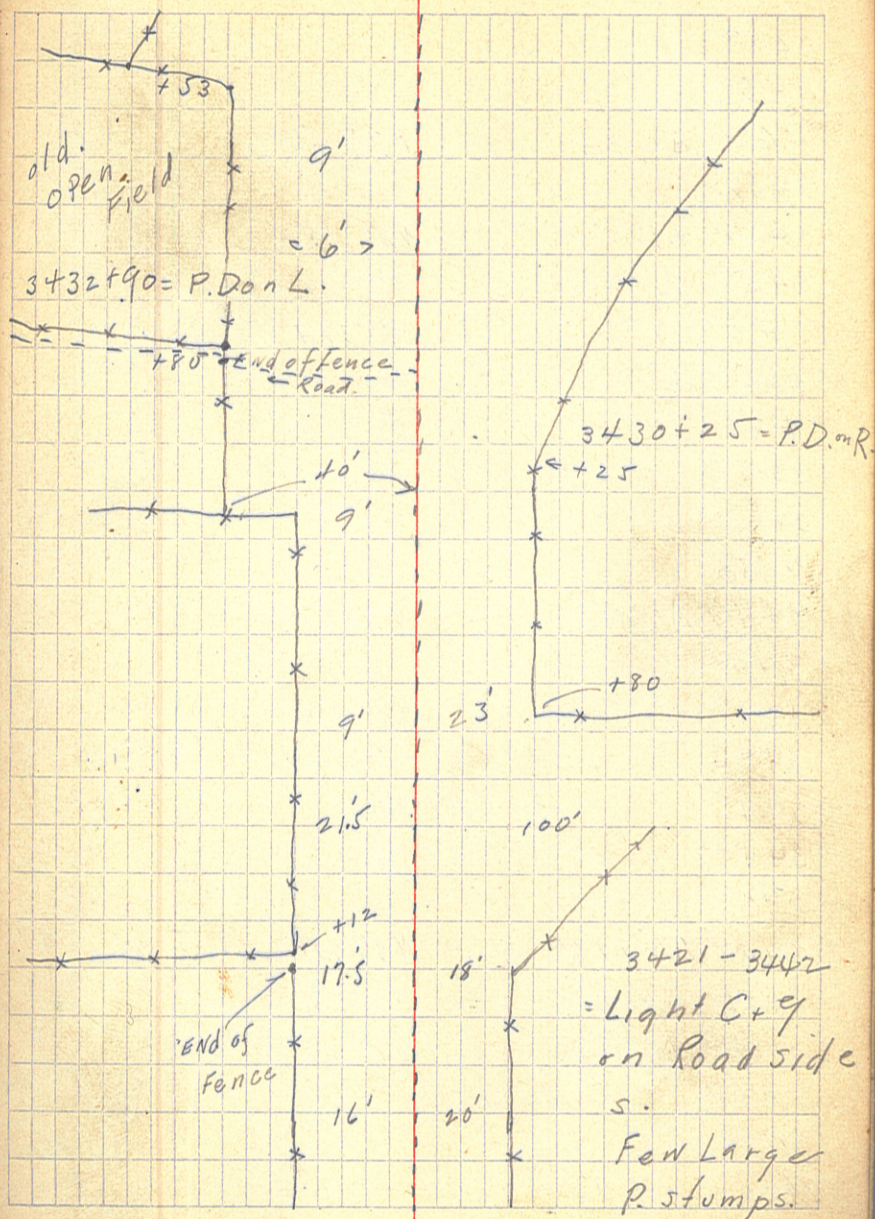 +53
9'
old.
open
Field
< 6' >
3432+90 = P.D. on L.
+80 End of fence
Road.
3430+25 = P.D. on R.
+25
40'
9'
+80
9'
23'
21.5'
100'
+12
17.5'
18'
3421 - 3442
= Light C+G
on Road side
s.
Few Large
P. stumps.
End of
Fence
16'
20'